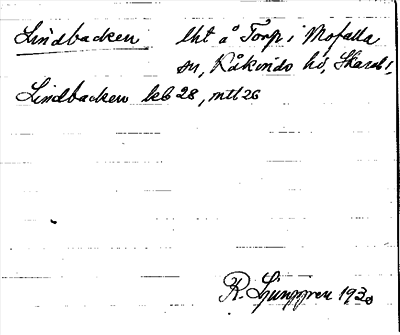 Lindbacken lht å Torp i Mofalla
sn, Kåkinds hd, Skarab l,
Lindbacken kb 28, mtl 26
R. Ljunggren 1930